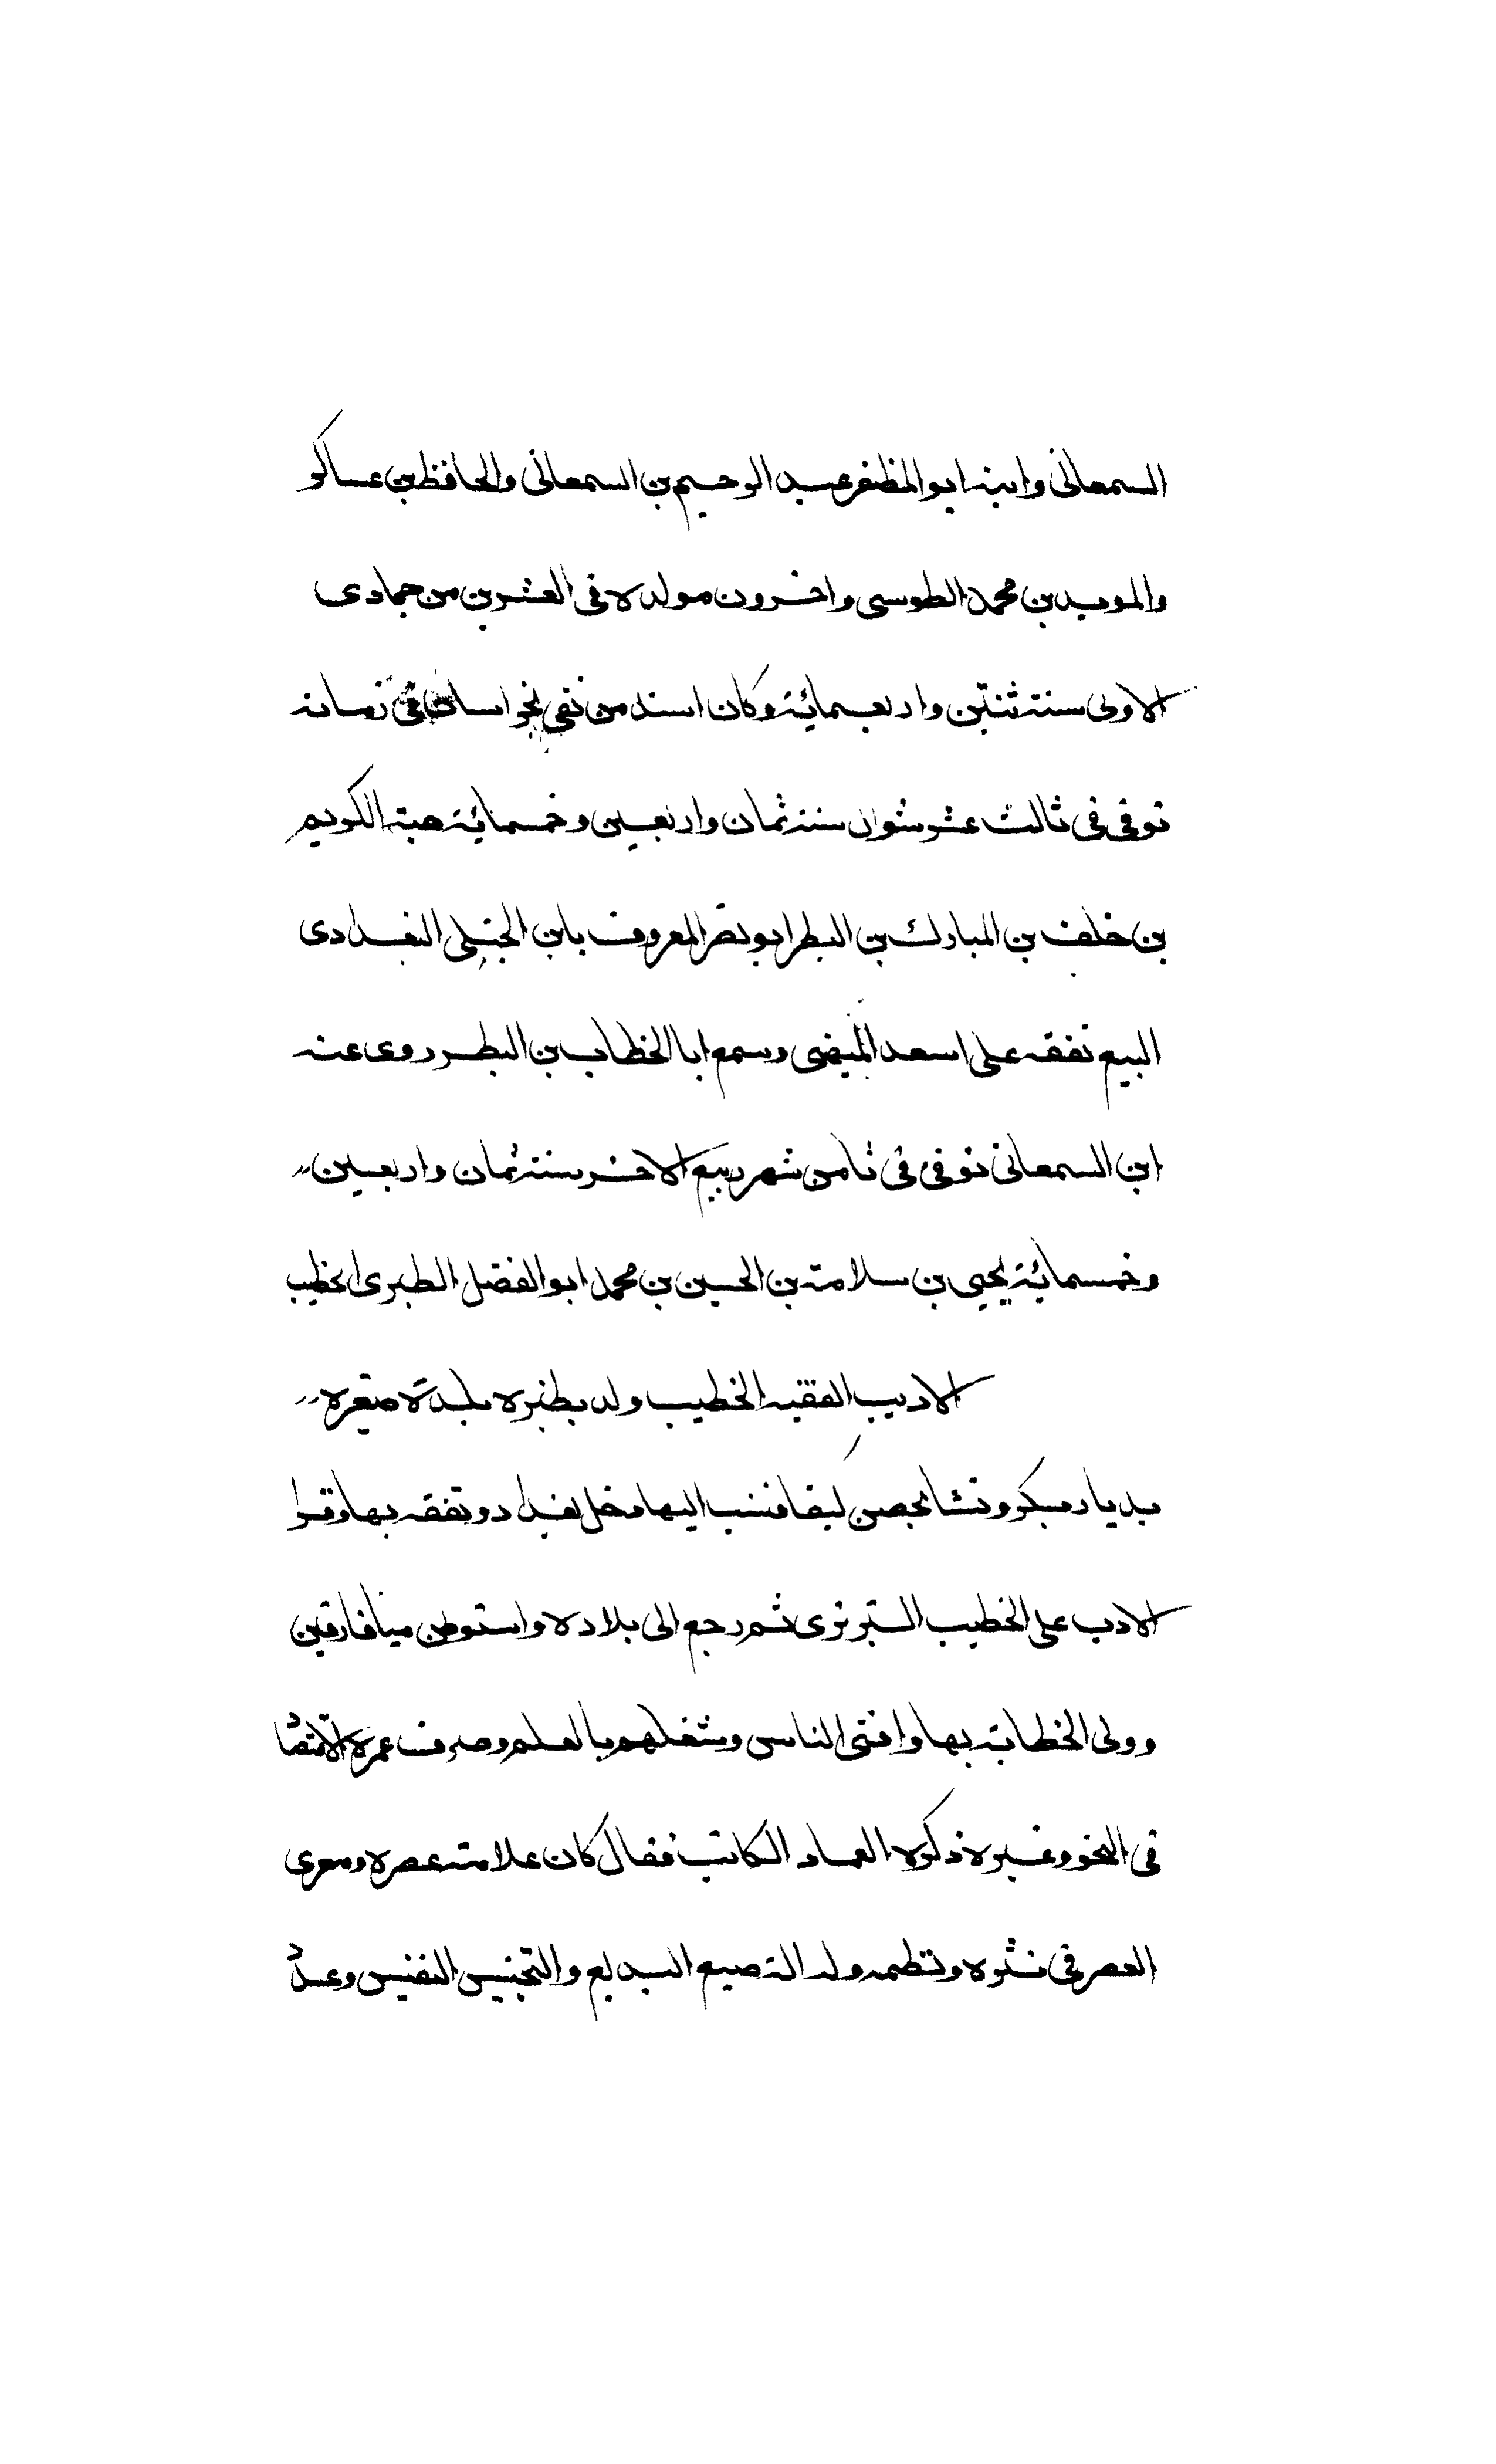 السمعانى وابنه ابو المظفر عبد الرحيم بن السمعانى والحافظ بن عساكر
والمويد بن محمد الطوسى واخرون مولده فى العشرين من جمادى
الاولى سنة ثنتين واربعمائة وكان اسند من بقى بخراسان فى زمانه
توفى فى ثالث عشر شوال سنة ثمان واربعين وخمسمائة هبة الكريم
بن خلف بن المبارك بن البطر ابو نصر المعروف بابن الحنبلى البغدادى
البيع تفقه على اسعد الميهنى وسمع ابا الخطاب بن البطر روى عنه
ابن السمعانى توفى فى ثامن شهر ربيع الاخر سنة ثمان واربعين
وخمسمائة يحيى بن سلامة بن الحسين بن محمد ابو الفضل الطبرى الخطيب
الاديب الفقيه الخطيب ولد بطنزه بلدة صغيره
بديار بكر ونشا بحصن كيفا فنسب اليها دخل بغداد وتفقه بها وقرا
الادب على الخطيب التبريزى ثم رجع الى بلاده واستوطن ميافارقين
وولى الخطابة بها وافتى الناس وشغلهم بالعلم وصرف عمره
فى النحو وغيره ذكره العماد الكاتب فقال كان علامة عصره ومعرى
العصر فى نثره ونظمه وله الترصيع البديع والتجنيس النفيس وعد